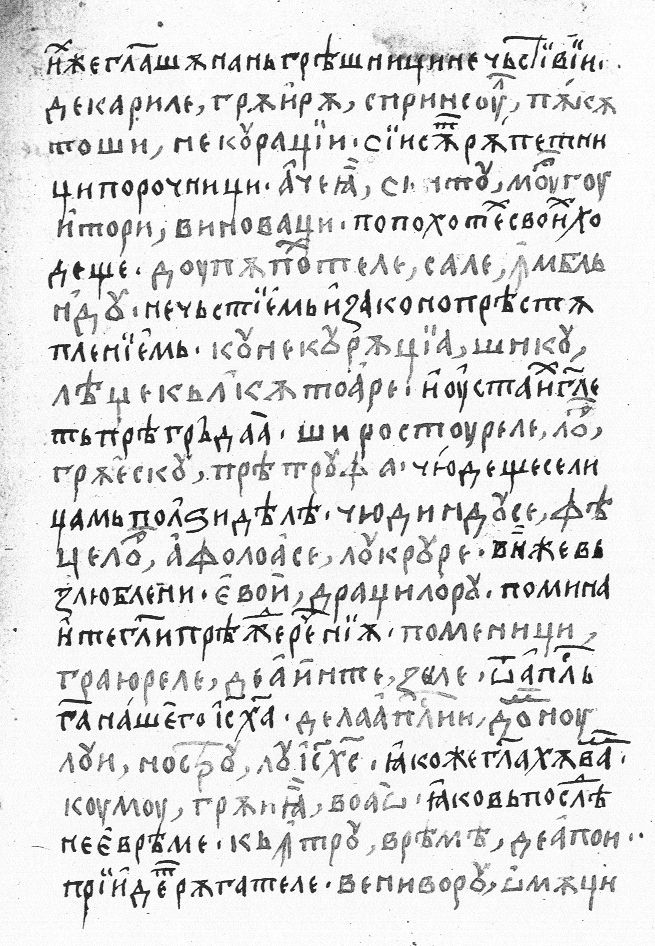 и҆́же гл҃аша на нь грѣшници нечьстїви́и·
де кариле, грѫи́рѫ, спринеоу҆л, пѫкѫ
тоши, некꙋрацїи· сїи сѫт рѫпетни
ци порочници· а҆чеꙗ҆, си҆нтꙋ, мол꙼гоу
и҆тори, виноваци· по похоте свои́ хо
деще· доупѫ по́хтеле, сале, ꙟ҆мбль
н꙼дꙋ· нечьстїе́мь и҆ законопрѣстѫ
пленїе́мь· кꙋ некꙋрѫцїа, ши кꙋ,
лѣцѣ кълкѫтоа́ре· и҆ оу҆ста и҆х гл҃е
ть прѣгръдаа· ши ростоуреле, лор,
грѫе́скꙋ, прѣ трꙋфа· чюдеще се ли
цамь пол꙼ѕи дѣлѣ· чюдиндꙋсе, фѣ
целор, а҆фолоа́се, лꙋкрꙋре· вы́ же вь
ꙁлюблени· є҆ вои́, драцилорꙋ· помина
и҆те гл҃и прѣжⷣереченїѫ· поменици,
граюреле, де а҆и́нте, ꙁиле· ѿ ап҃ль
га҃ на́шего і҆с ха҃· де ла ап҃лїи, дⷪмноу
луи, нострꙋ, лꙋ і҆с хс· ꙗ҆коже гл҃ахѫ ва́м·
коумоу, грѫиꙗ҆, воаѡ· ꙗ҆ко вь послѣ
нее є҆ врѣме· къ ꙟ҆трꙋ, врѣмѣ, де а҆пои··
прїи́дет рѫгателе· вени ворꙋ, ѡ҆мѫци